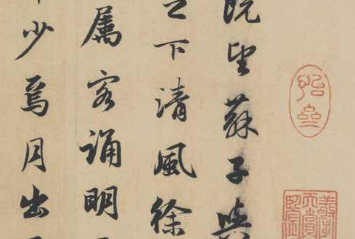 既望蘇子與
之下清風徐
屬客誦明
少焉月出